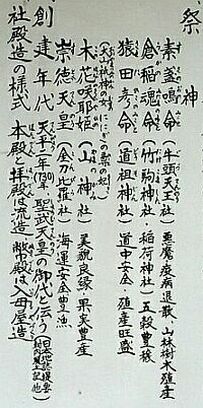 祭神
素盞嗚命(牛頭天王社)悪魔疫病退散、山林樹木殖産
倉稲魂命(竹駒神社・稲荷神社)五穀豊穣
猿田彦命(道祖神社)道中安全・殖産旺盛
木花咲耶姫(山ノ神社)美貌良縁 果実豊産
崇徳天皇(金刀比羅神社)海運安全豊漁
創建年代 天平二年(730年)聖武天皇の御代と伝う
社殿造の様式 本殿と拝殿は流造 幣殿は入母屋造